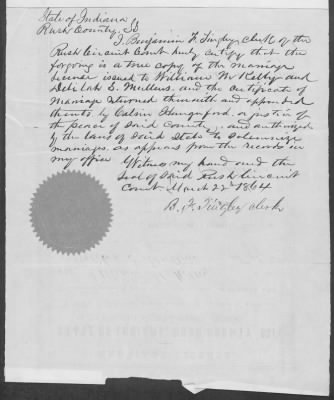 State of Indiana
Rush County, SS
I Benjamin F. Tingley clerk of the
Rush Circuit Court herby certify that the
forgoing is a true copy of the marriage
license issued to William W Kelly and
Delilah L. Mullens. and the certificate of
Marriage returned therewith and appended
thereto by Calvin Hungerford, a justice of
the peace of said County, and authorized
by the laws of said State to solemnize
marriages, as appears from the records in
my office Witness my hand and the
Seal of Said Rush Circuit
Court March 22nd 1864
B. F. Tingley clerk